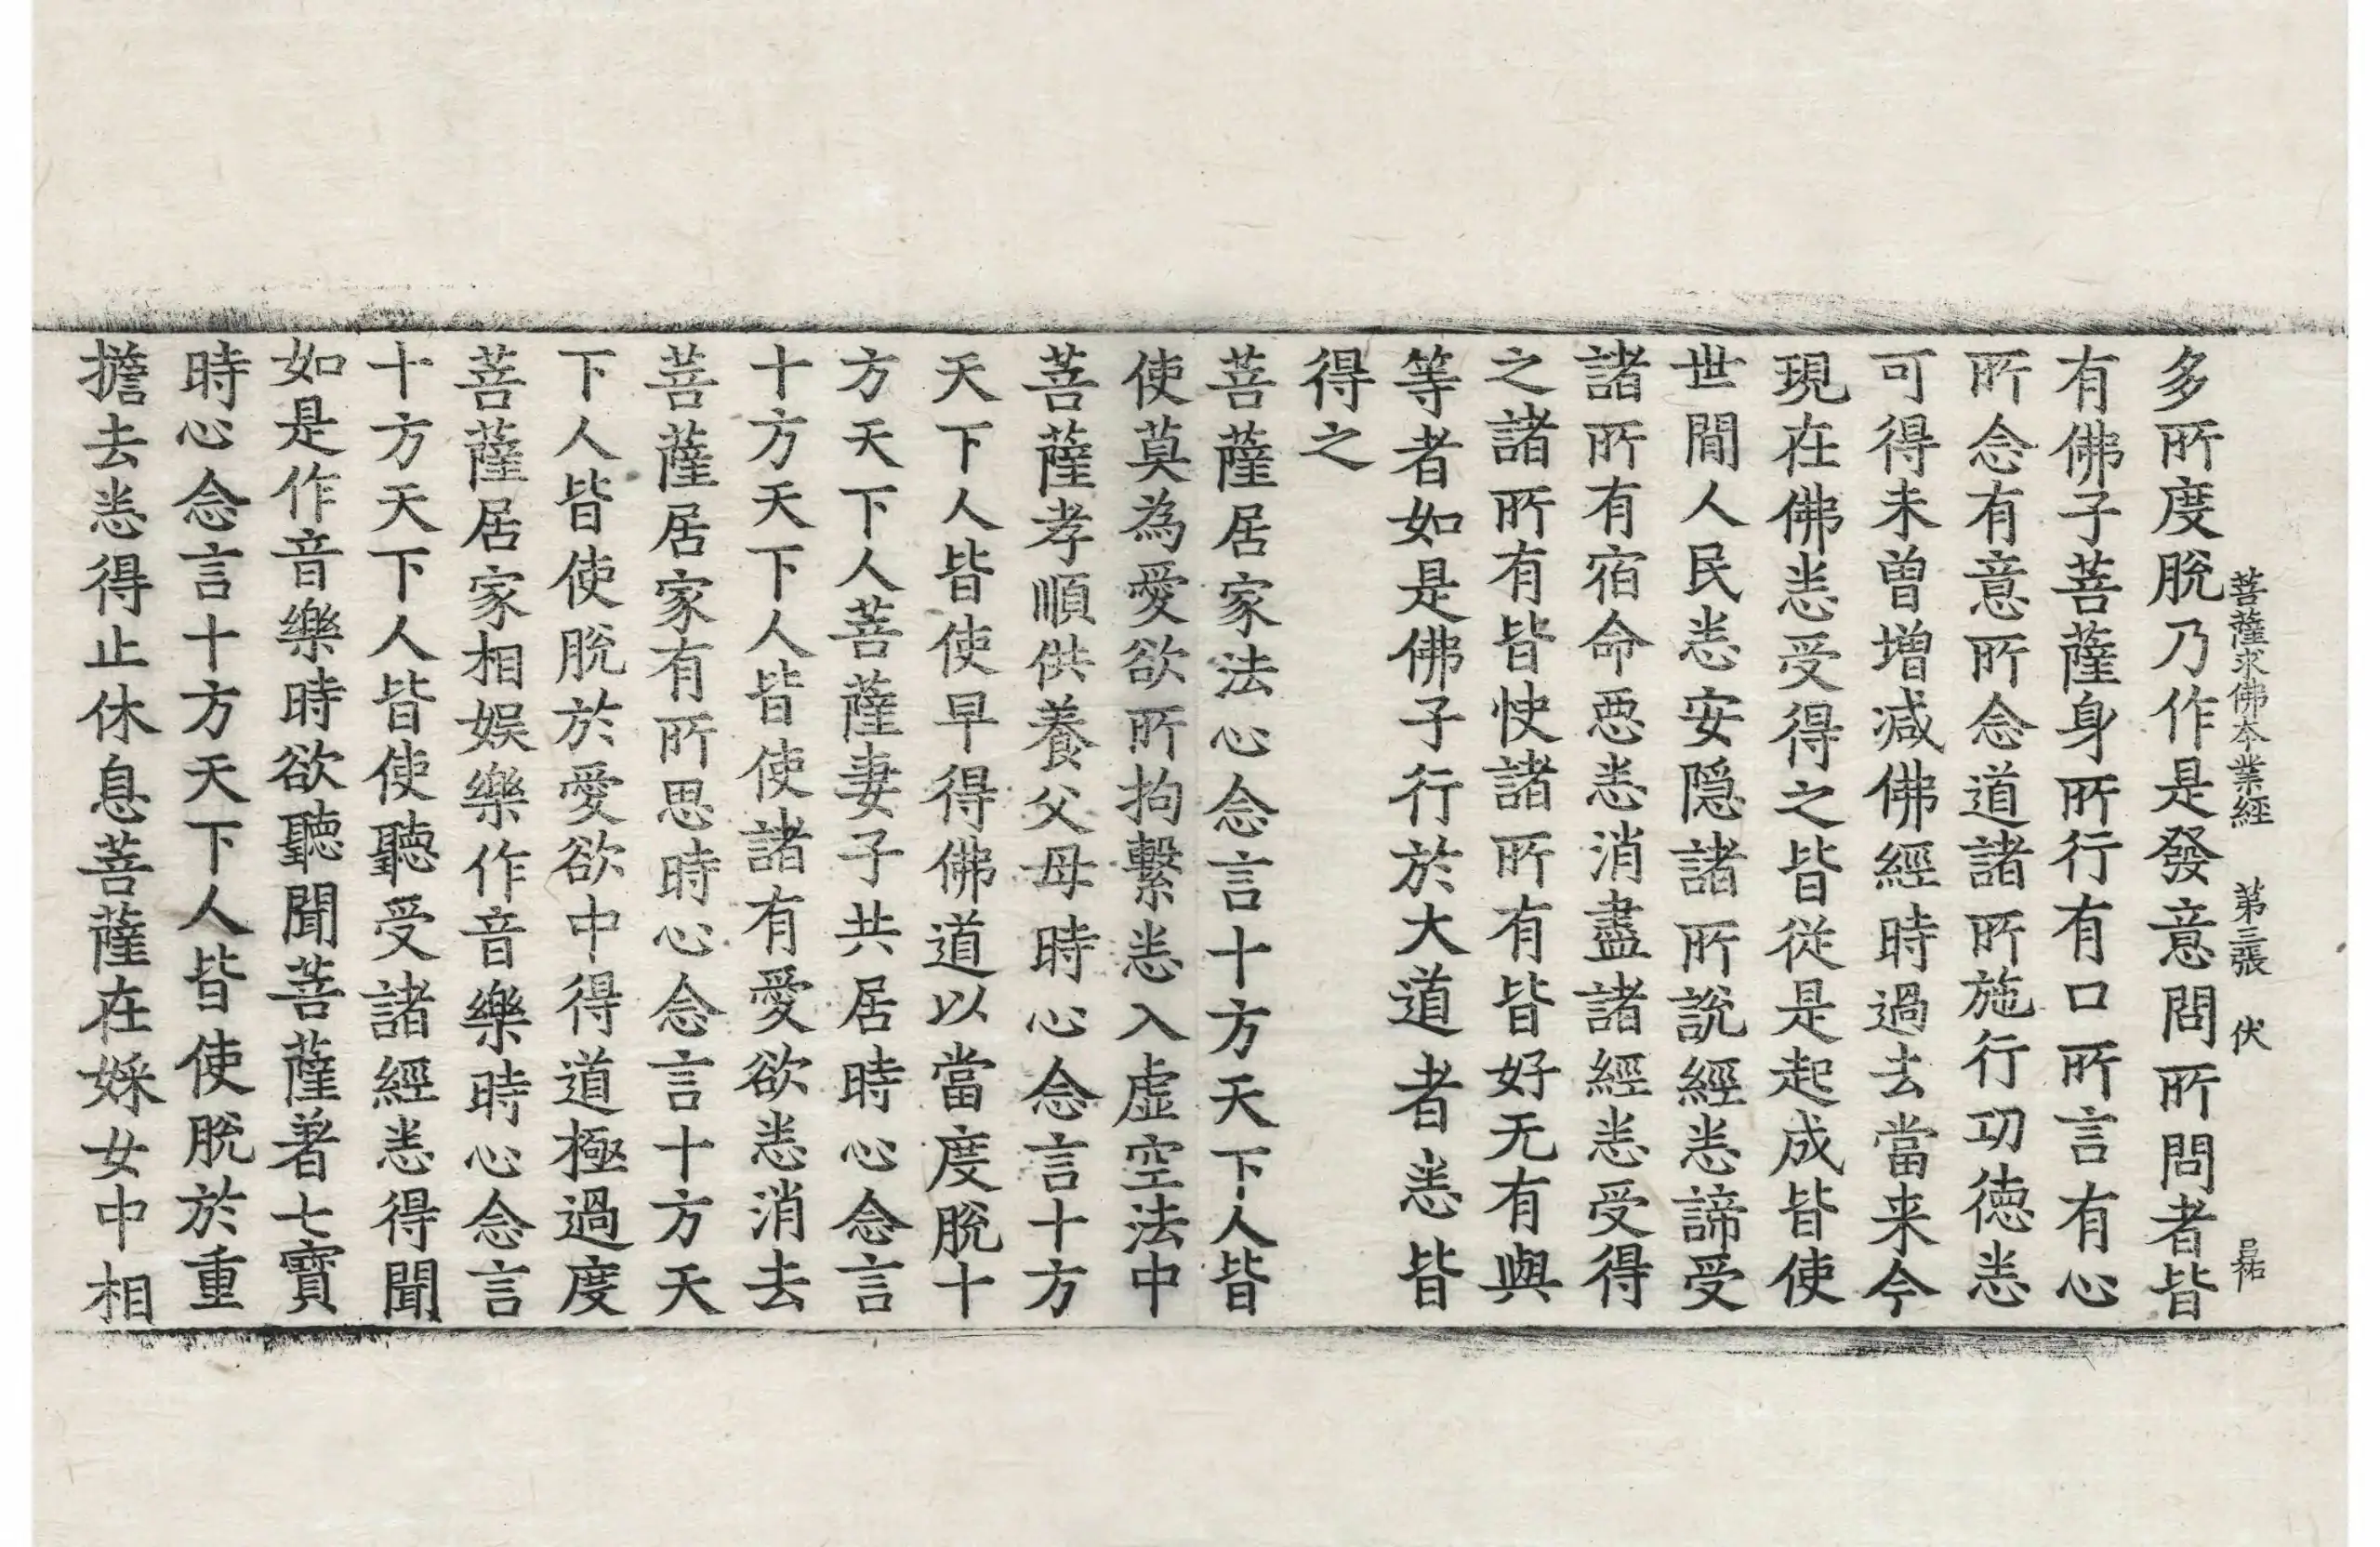 菩薩求佛本業經 第三張 伏
多所度脫乃作是發意問所問者皆
有佛子菩薩身所行有口所言有心
所念有意所念道諸所施行功德悉
可得未曾增减佛經時過去當来今
現在佛悉受得之皆從是起成皆使
世間人民悉安隠諸所說經悉諦受
諸所有宿命惡悉消盡諸經悉受得
之諸所有皆快諸所有皆好无有與
等者如是佛子行於大道者悉皆
得之
菩薩居家法心念言十方天下人皆
使莫為愛欲所拘繫悉入虛空法中
菩薩孝順供養父母時心念言十方
天下人皆使早得佛道以當度脫十
方天下人菩薩妻子共居時心念言
十方天下人皆使諸有愛欲悉消去
菩薩居家有所思時心念言十方天
下人皆使脫於愛欲中得道極過度
菩薩居家相娱樂作音樂時心念言
十方天下人皆使聽受諸經悉得聞
如是作音樂時欲聽聞菩薩著七寶
時心念言十方天下人皆使脫於重
擔去悉得止休息菩薩在婇女中相